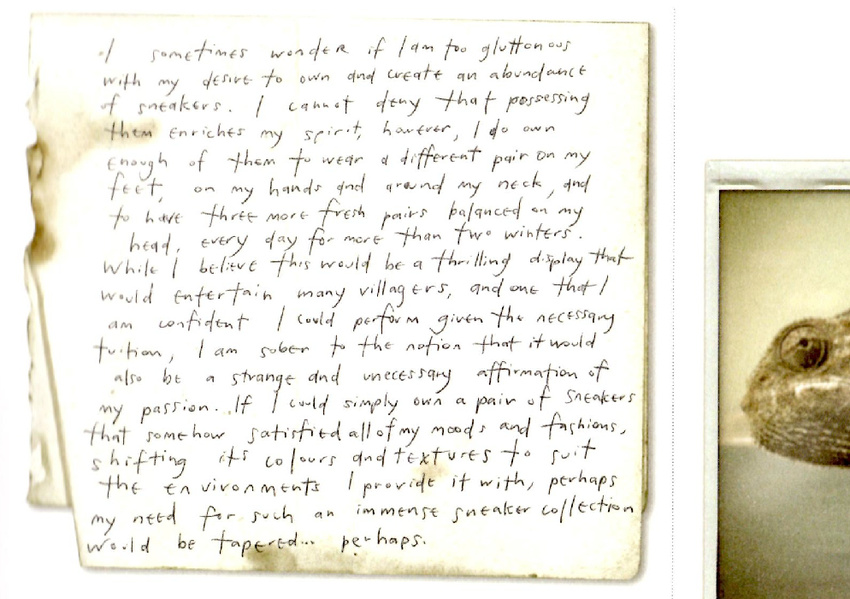 I sometimes wonder if I am too gluttonous
with my desire to own and create an abundance
of sneakers. I cannot deny that possessing
them enriches my spirit, however, I do own
enough of them to wear a different pair on my
feet, on my hands and around my neck, and
to have three more fresh pairs balanced on my
head, every day for more than two winters.
While I believe this would be a thrilling display that
would entertain many villagers, and one that I
am confident I could perform given the necessary
tuition, I am sober to the notion that it would
also be a strange and unecessary affirmation of
my passion. If I could simply own a pair of sneakers
that somehow satisfied all of my moods and fashions,
shifting its colours and textures to suit
the environments I provide it with, perhaps
my need for such an immense sneaker collection
would be tapered... perhaps.